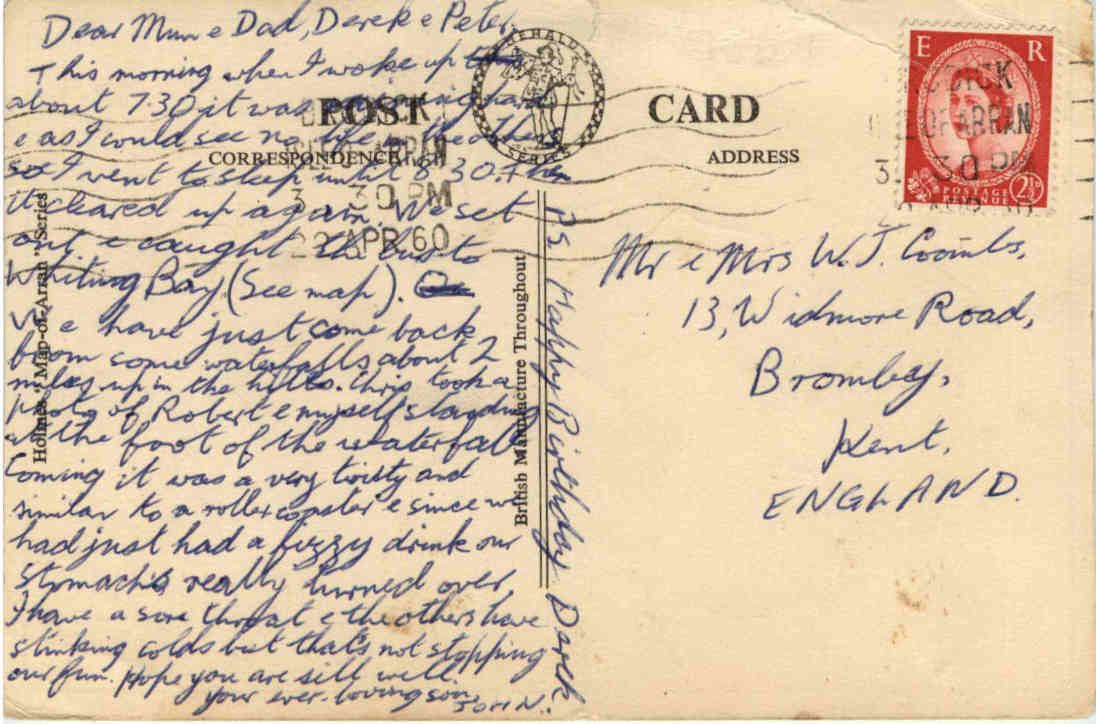 Dear Mum e Dad, Derek e Peter,
This morning when I woke up
about 7.30 it was raining hard
e as I could see no life in the others
so I went to sleep until 8.30. Then
it cleared up again. We set
out e caught the bus to
Whiting Bay (See map).
We have just come back
from some waterfalls about 2
miles up in the hills. Chris took a
photo of Robert e myself standing
at the foot of the waterfall
Coming it was a very twisty and
similar to a roller coaster e since we
had just had a fizzy drink our
stomachs really turned over
I have a sore throat e the others have
stinking colds but that's not stopping
our fun. Hope you are sill well.
your ever-loving son
JOHN.
PS Happy Birthday Derek
POST CARD
CORRESPONDENCE
ADDRESS
HERALD SERIES
Holmes "Map-of-Arran" Series
British Manufacture Throughout
BRODICK
ISLE OF ARRAN
3. 30 PM
22 APR 60
E R
POSTAGE
REVENUE
2½D
ODICK
OF ARRAN
3. 30 PM
Mr e Mrs W. J. Coombs,
13, Widmore Road,
Bromley,
Kent,
ENGLAND.